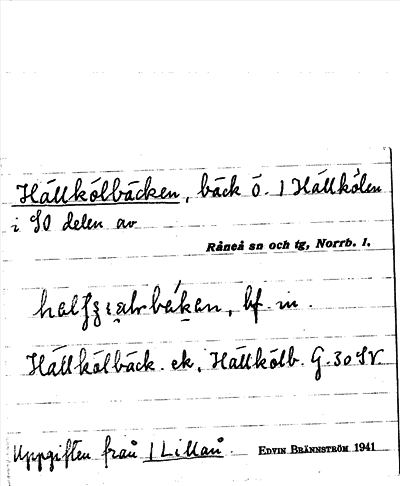 Hällkölbäcken, bäck ö. I Hällkölen
i SO delen av
Råneå sn och tg, Norrb. l.
bf. m.
Hällkölbäck. ek, Hällkölb. G. 30 SV.
Uppgiften från I Lillån. EDVIN BRÄNNSTRÖM 1941